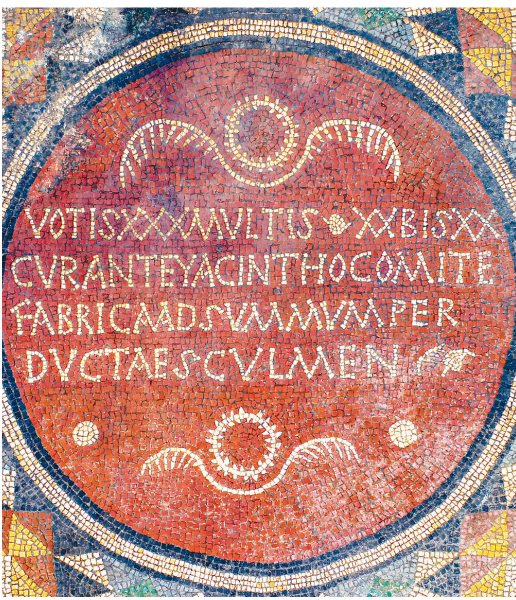 VOTISXXXMVLTIS❧XXBISXX
CVRANTEYACINTHOCOMITE
FABRICAADSVMMVMPER
DVCTAESCVLMEN❧